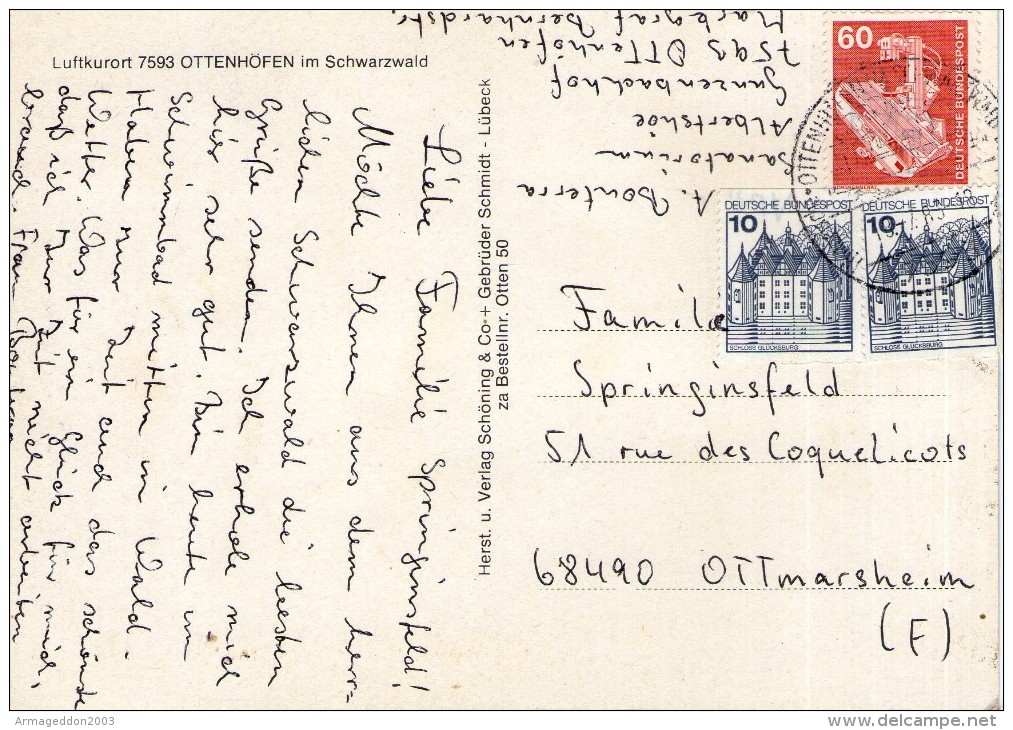 Luftkurort 7593 OTTENHÖFEN im Schwarzwald
Liebe Familie Springinsfeld!
Möchte Ihnen aus dem herr=
lichen Schwarzwald die besten
Grüße senden. Ich erhole mich
hier sehr gut. Bin heute im
Schwimmbad mitten in Wald.
Haben nur Zeit und das schönste
Wetter. Was für ein Glück für mich,
daß ich zur Zeit nicht arbeiten
brauch. Frau
Herst. u. Verlag Schöning & Co + Gebrüder Schmidt - Lübeck
za Bestellnr. Otten 50
A. Bonterra
Sanatorium
Albertshöe
Ganzenbachhof
7593 OTTenhöfen
Markgraf Bernhardstr.
60
DEUTSCHE BUNDESPOST
DEUTSCHE BUNDESPOST
10
SCHLOSS GLÜCKSBURG
DEUTSCHE BUNDESPOST
10
SCHLOSS GLÜCKSBURG
Familie
Springinsfeld
51 rue des Coquelicots
68490 OTTmarsheim
(F)
Armageddon2003
delcampe.net